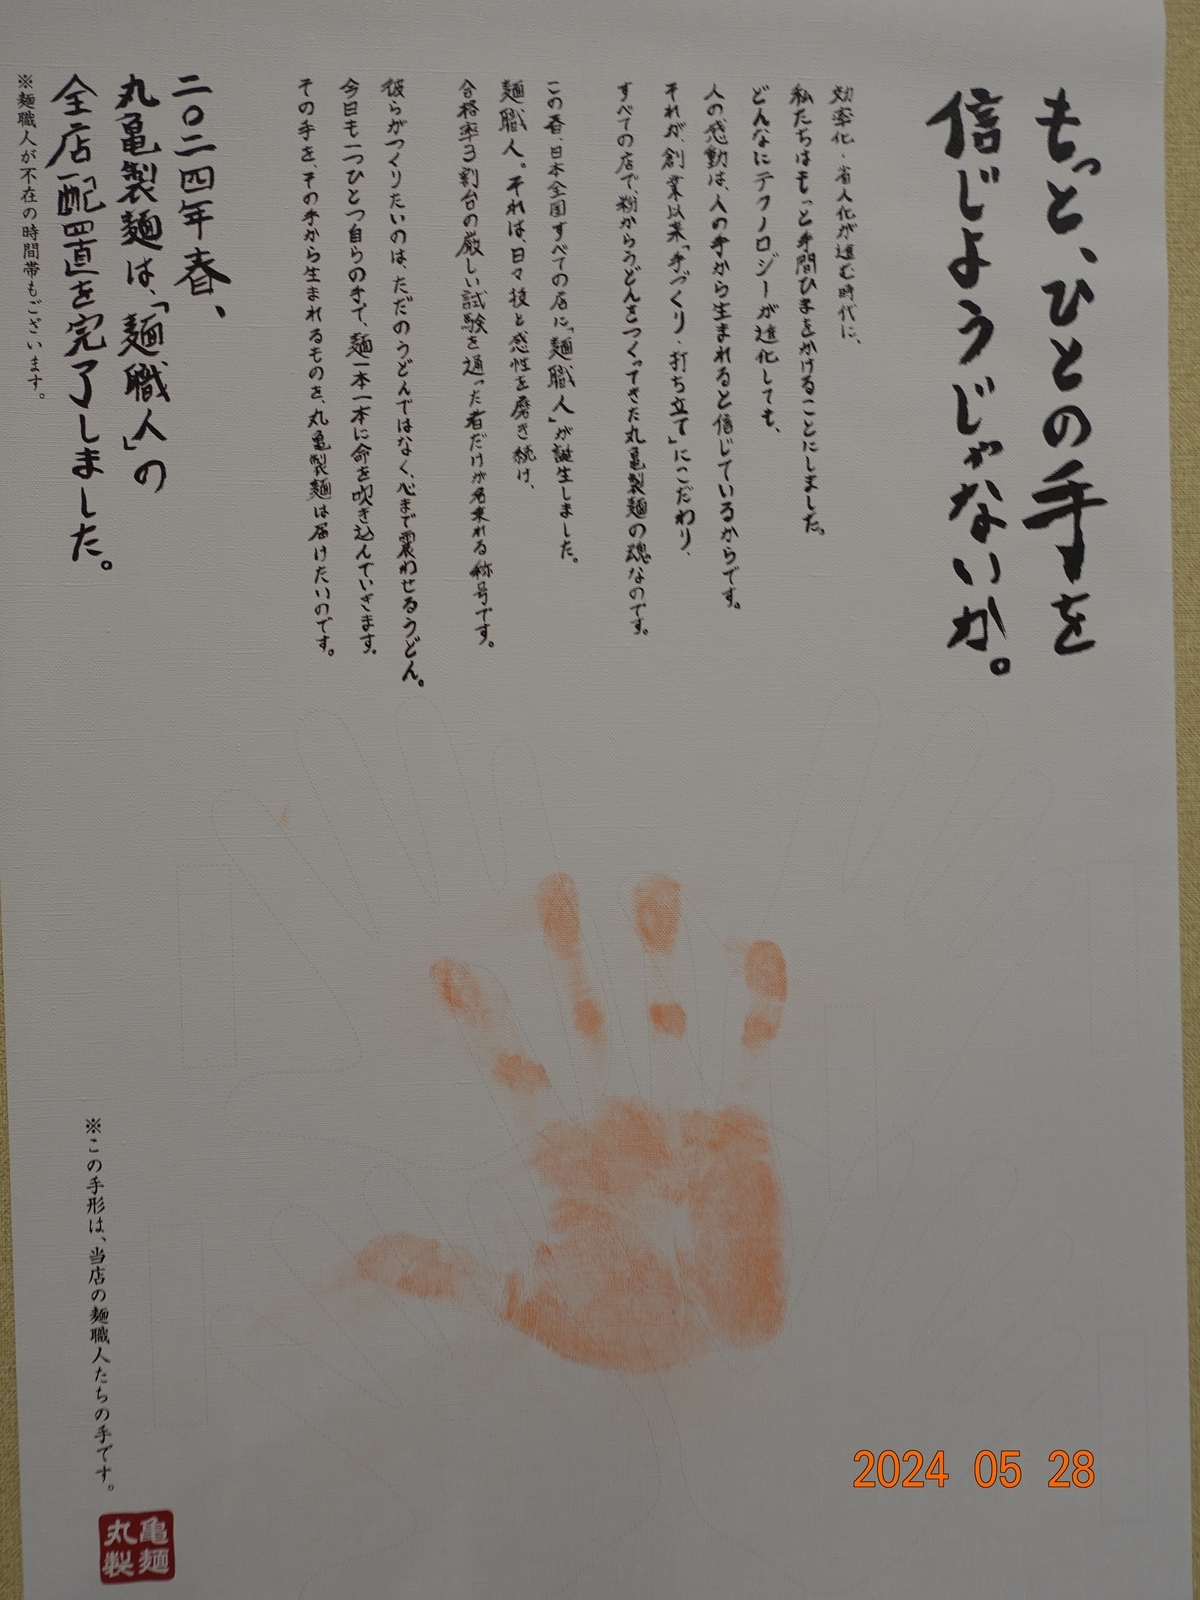 もっと、ひとの手を
信じようじゃないか。
効率化・省人化が進む時代に、
私たちはもっと手間ひまをかけることにしました。
どんなにテクノロジーが進化しても、
人の感動は、人の手から生まれると信じているからです。
それが、創業以来「手づくり・打ち立て」にこだわり、
すべての店で、粉からうどんをつくってきた丸亀製麺の魂なのです。
この春、日本全国すべての店に「麺職人」が誕生しました。
麺職人。それは、日々技と感性を磨き続け、
合格率3割台の厳しい試験を通った者だけが名乗れる称号です。
彼らがつくりたいのは、ただのうどんではなく、心まで震わせるうどん。
今日も一つひとつ自らの手で、麺一本一本に命を吹き込んでいきます。
その手を、その手から生まれるものを、丸亀製麺は届けたいのです。
二〇二四年春、
丸亀製麺は、「麺職人」の
全店配置を完了しました。
※麺職人が不在の時間帯もございます。
※この手形は、当店の麺職人たちの手です。
丸亀
製麺
2024 05 28